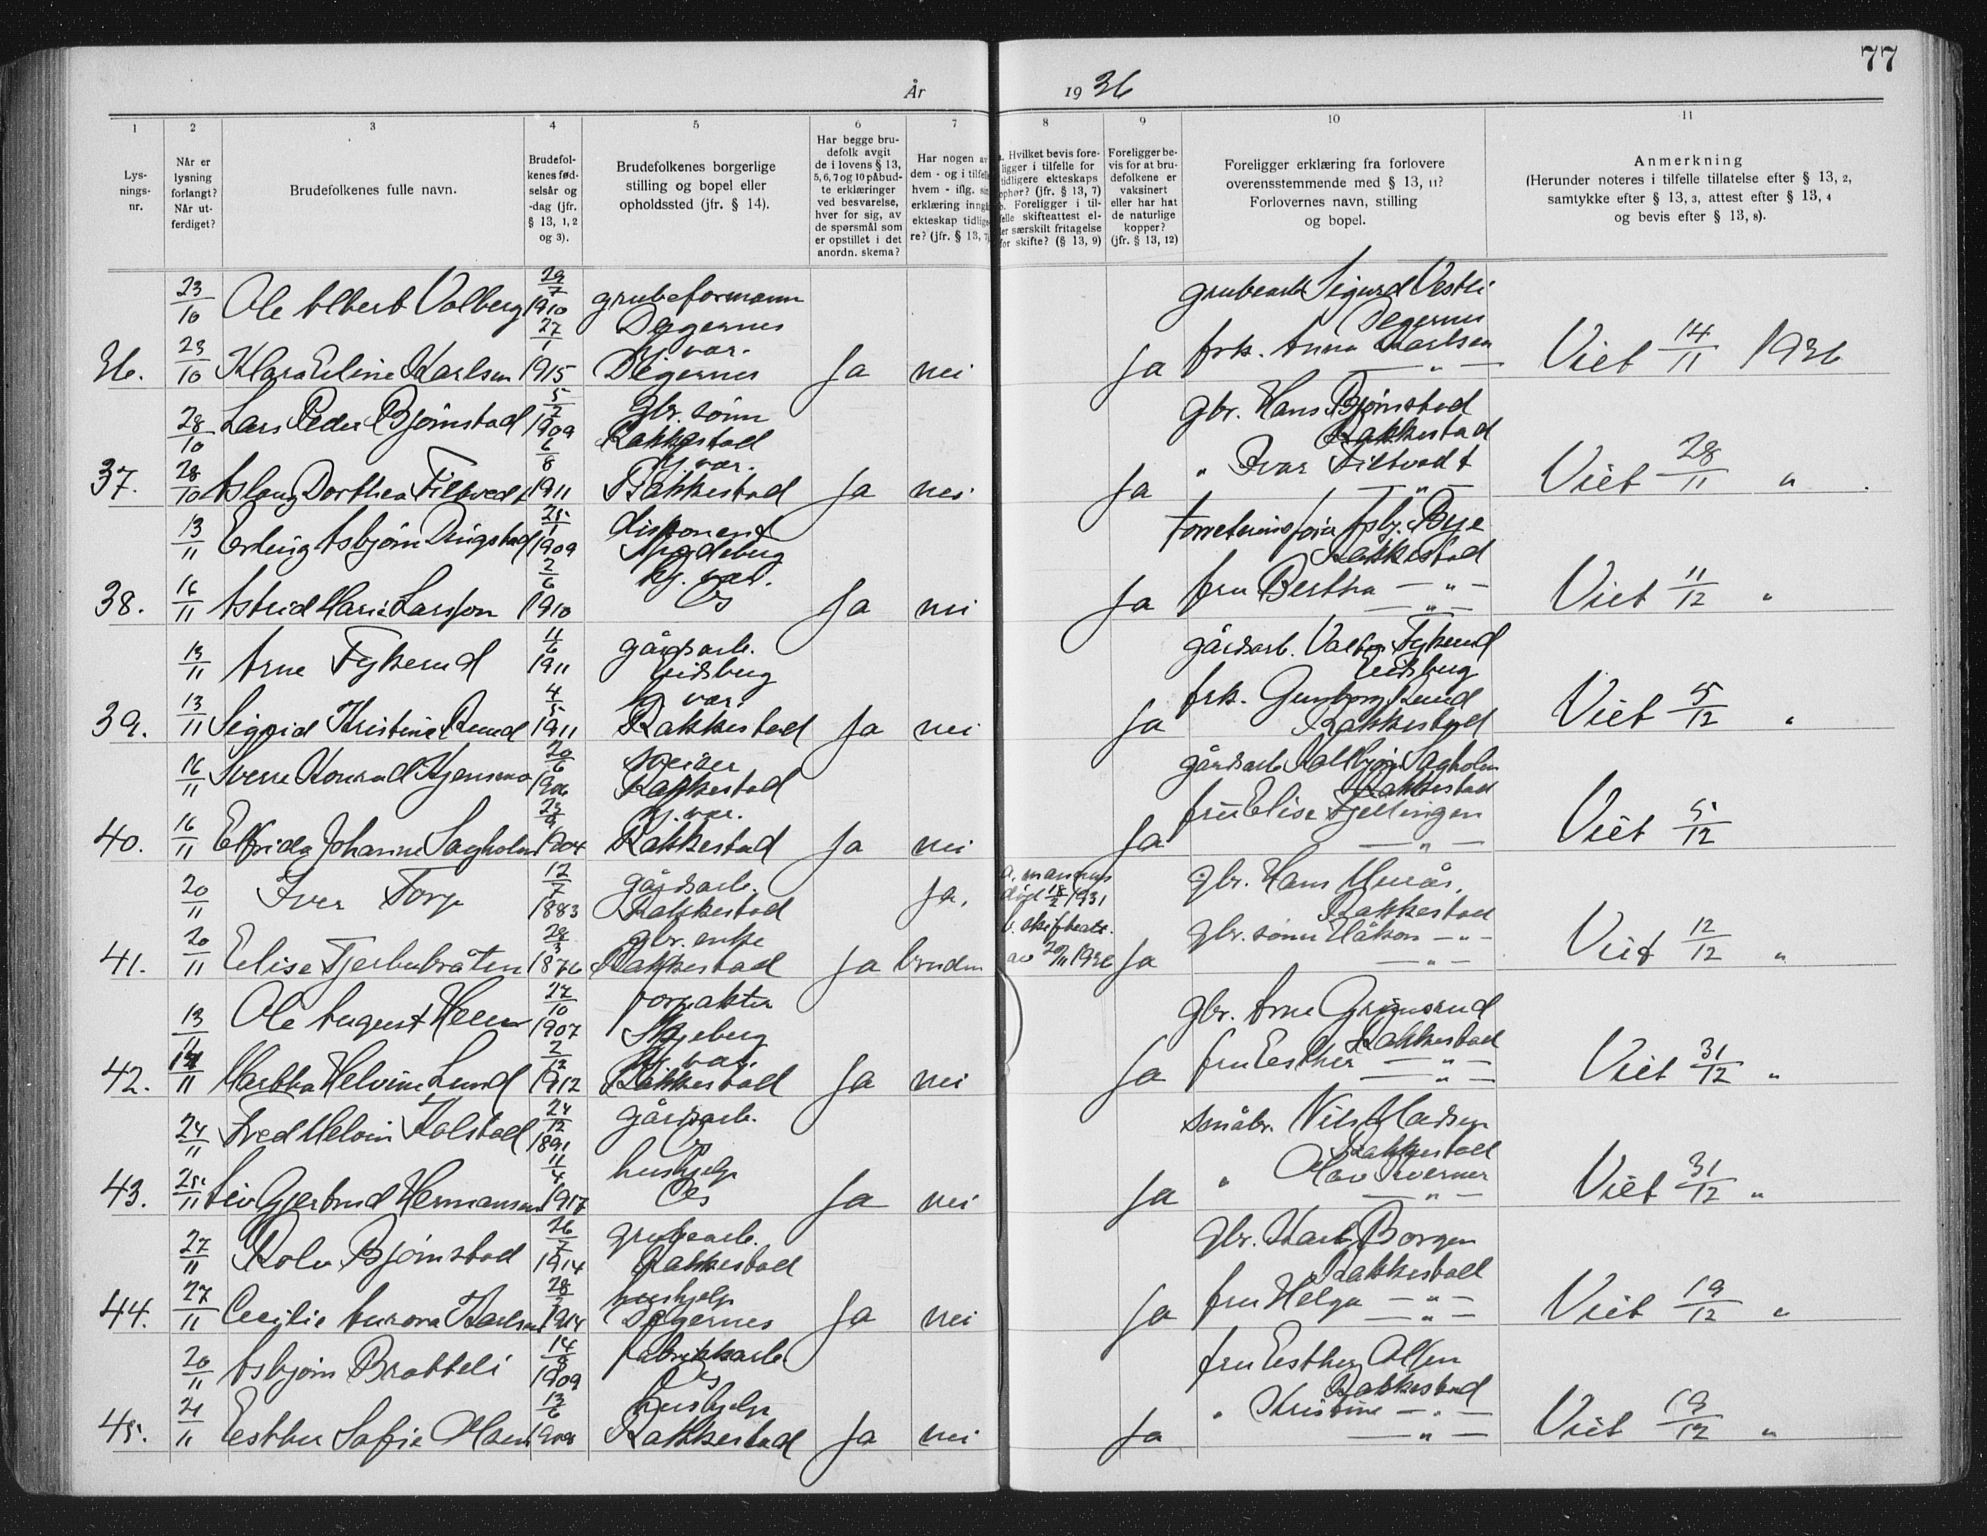 77
År 1936
1 2 3 4 5 6 7 8 9 10 11
Lys-
nings-
nr.
Når er
lysning
forlangt?
Når ut-
ferdiget?
Brudefolkenes fulle navn.
Brudefol-
kenes fød-
selsår og
-dag (jfr.
§ 13, 1, 2
og 3).
Brudefolkenes borgerlige
stilling og bopel eller
opholdssted (jfr. § 14).
Har begge bru-
defolk avgit
de i lovens § 13,
5, 6, 7 og 10 påbud-
te erklæringer
ved besvarelse,
hver for sig, av
de spørsmål som
er opstillet i det
anordn. skema?
Har nogen av
dem - og i tilfelle
hvem - iflg. sin
erklæring inngå
ekteskap tidlige-
re? (jfr. § 13, 7)
a. Hvilket bevis fore-
ligger i tilfelle for
tidligere ekteskaps
ophør? (jfr. § 13, 7)
b. Foreligger i til-
felle skifteattest el-
er særskilt fritagelse
for skifte? (§ 13, 9)
Foreligger be-
vis for at bru-
defolkene er
vaksinert
eller har hat
de naturlige
kopper?
(jfr. § 13, 12)
Foreligger erklæring fra forlovere
overensstemmende med § 13, 11?
Forlovernes navn, stilling
og bopel.
Anmerkning
(Herunder noteres i tilfelle tillatelse efter § 13, 2,
samtykke efter § 13, 3, attest efter § 13, 4
og bevis efter § 13, 8).
23/10 Ole Albert Volberg 29/7 1910 grubeformann Degernes grubearb Sigurd Vestli Degernes
36. 23/10 Klara Eline Karlsen 27/1 1915 hj. var. Degernes Ja nei Ja frk. Anna Karlsen — „ — Viet 14/11 1936
28/10 Lars Peder Bjørnstad 5/7 1909 gbr. sønn Rakkestad gbr. Hans Bjørnstad Rakkestad
37. 28/10 Aslaug Dorthea Filtvedt 6/8 1911 hj. var. Rakkestad Ja nei Ja „ Ivar Filtvedt — „ — Viet 28/11 „
13/11 Erling Asbjørn Ringstad 25/1 1909 disponent Spydeberg Forretningsfører Asbj. Bye Rakkestad
38. 16/11 Astrid Marie Larsson 2/6 1910 hj. var. Os Ja nei Ja fru Bertha — „ — Viet 11/12 „
13/11 Arne Fykerud 11/6 1911 gårdsarb. Eidsberg gårdsarb. Fykerud Eidsberg
39. 13/11 Sigrid Kristine Rud 4/5 1911 hj. var. Rakkestad Ja nei Ja frk. Gunborg Ruud Rakkestad Viet 5/12 „
16/11 Sverre Konrad Kjensmo 20/6 1906 sveiser Rakkestad gårdsarb. Kolbjørn Sagholen Rakkestad
40. 16/11 Elfrida Johanne Sagholen 1904 hj. var. Rakkestad Ja nei Ja fru Elise Fjellingen — „ — Viet 5/12
20/11 Iver Torp 12/7 1883 gårdsarb. Rakkestad ja, a. mannens død 18/2 1931 gbr. Hans Rakkestad
41. 20/11 Elise Fjerbubråten 28/3 1876 gbr. enke Rakkestad Ja bruden b. skifteatt. av 20/11 1936 Ja gbr. sønn Håkon — „ — Viet 12/12 „
13/11 Ole August Heen 27/10 1907 forpakter Skjeberg gbr. Arne Grimsrud Rakkestad
42. 14/11 Martha Helvine Lund 2/12 1912 hj. var. Rakkestad Ja nei Ja fru Esther — „ — Viet 31/12 „
24/11 Fred Melvin Kolstad 24/12 1891 gårdsarb. Os småbr. Nils Madsen Rakkestad
43. 25/11 Liv Gjertrud Hermansen 11/4 1917 hushjelp Os Ja nei Ja „ Olav Iverner — „ — Viet 31/12 „
27/11 Rolv Bjørnstad 26/7 1914 grubearb. Rakkestad gbr. Karl Borgen Rakkestad
44. 27/11 Cecilie Aurora Karlsen 1914 hushjelp Degernes Ja nei Ja fru Helga — „ — Viet 19/12 „
20/11 Asbjørn Bratteli 14/8 1909 fabrikkarb. Os fru Esther Olsen Rakkestad
45. 21/11 Esther Sofie Olsen 13/6 1908 hushjelp Rakkestad Ja nei Ja „ Kristine — „ — Viet 19/12 „